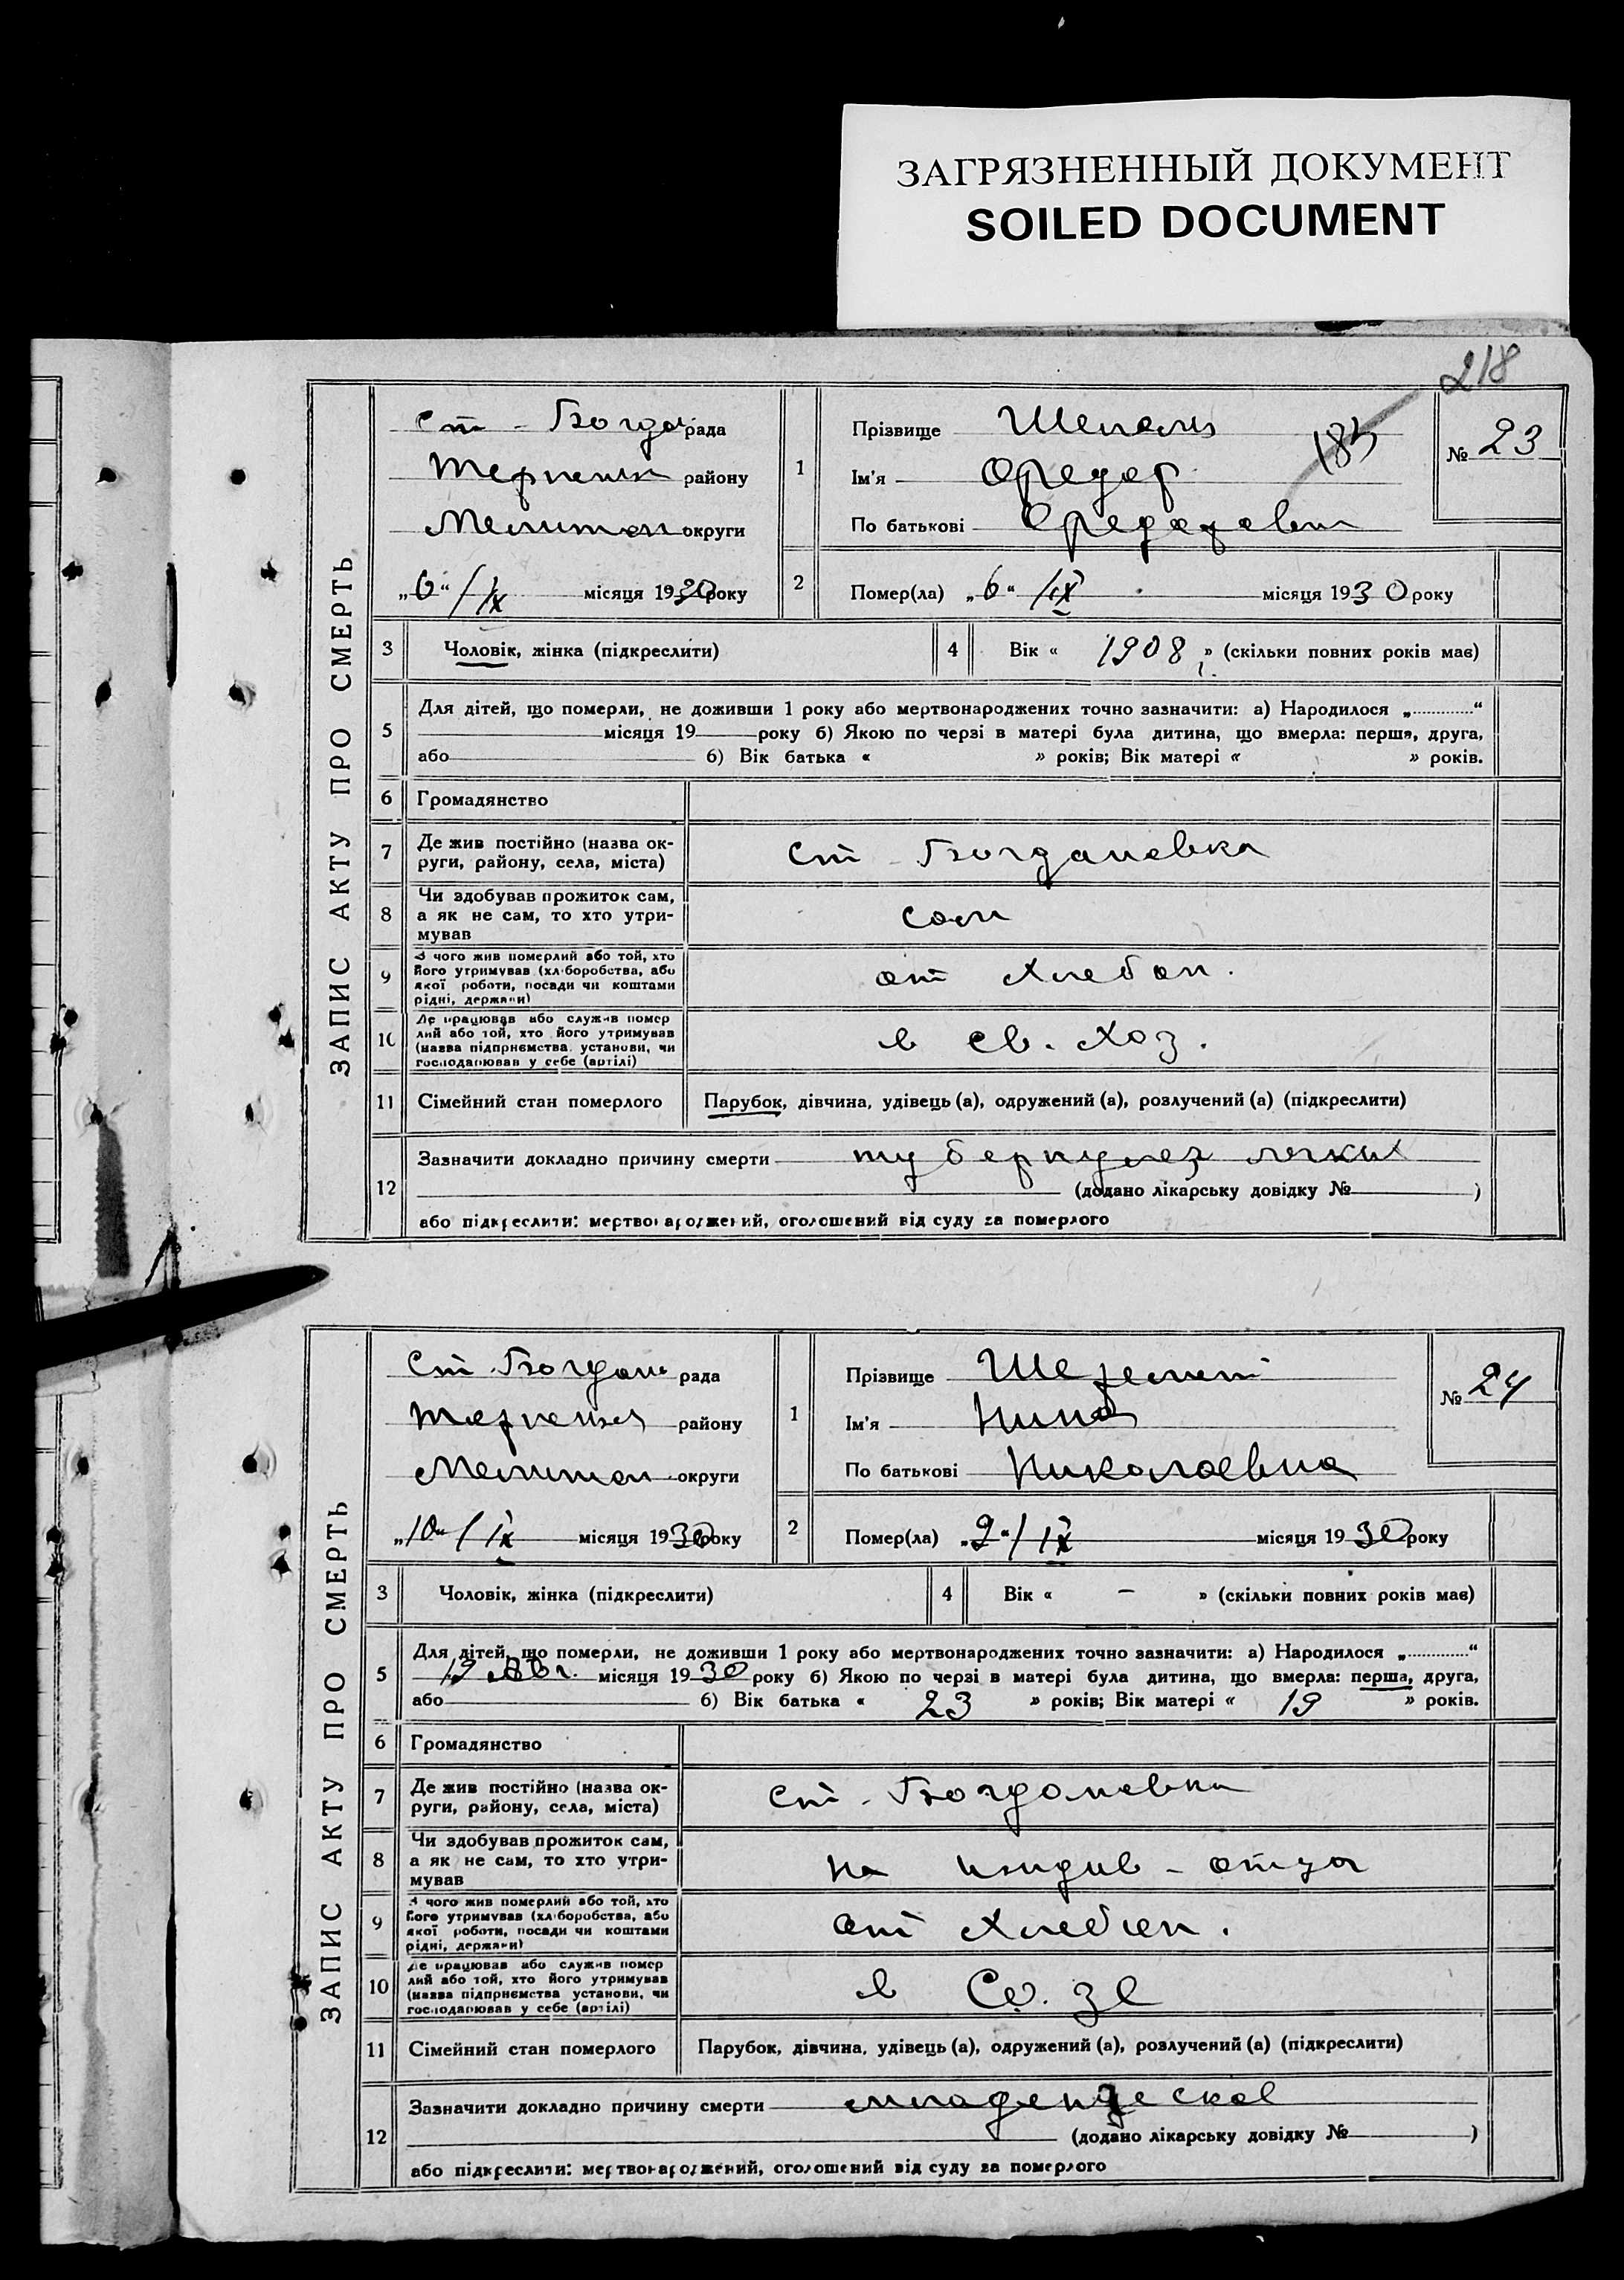 ЗАГРЯЗНЕННЫЙ ДОКУМЕНТ
SOILED DOCUMENT
218
185
ЗАПИС АКТУ ПРО СМЕРТЬ
Ст - Богдан рада
района району
Мелитоп округи
„6“ /IX місяця 1930 року
1 Прізвище Шепель
Ім'я Федор
По батькові Федорович
№ 23
2 Помер(ла) „6“ /IX місяця 1930 року
3 Чоловік, жінка (підкреслити)
4 Вік « 1908 » (скільки повних років має)
5 Для дітей, що померли, не доживши 1 року або мертвонароджених точно зазначити: а) Народилося „............“
місяця 19 року б) Якою по черзі в матері була дитина, що вмерла: перша, друга,
або б) Вік батька « » років; Вік матері « » років.
6 Громадянство
7 Де жив постійно (назва ок-
руги, району, села, міста) Ст - Богдановка
8 Чи здобував прожиток сам,
а як не сам, то хто утри-
мував сам
9 З чого жив померлий або той, хто
його утримував (хліборобства, або
якої роботи, посади чи коштами
рідні, держави) от хлебоп.
10 Де працював або служив помер
лий або той, хто його утримував
(назва підприємства, установи, чи
господарював у себе (артілі) в св. хоз.
11 Сімейний стан померлого Парубок, дівчина, удівець (а), одружений (а), розлучений (а) (підкреслити)
12 Зазначити докладно причину смерти туберкулез легких
(додано лікарську довідку № )
або підкреслити: мертвонароджений, оголошений від суду за померлого
ЗАПИС АКТУ ПРО СМЕРТЬ
Ст. Богдан рада
району
Мелитоп округи
„10“ /IX місяця 1930 року
1 Прізвище Шеремет
Ім'я Нина
По батькові Николаевна
№ 24
2 Помер(ла) „9“ /IX місяця 1930 року
3 Чоловік, жінка (підкреслити)
4 Вік « – » (скільки повних років має)
5 Для дітей, що померли, не доживши 1 року або мертвонароджених точно зазначити: а) Народилося „............“
19 Авг. місяця 1930 року б) Якою по черзі в матері була дитина, що вмерла: перша, друга,
або б) Вік батька « 23 » років; Вік матері « 19 » років.
6 Громадянство
7 Де жив постійно (назва ок-
руги, району, села, міста) Ст. Богдановка
8 Чи здобував прожиток сам,
а як не сам, то хто утри-
мував на иждив - отца
9 З чого жив померлий або той, хто
його утримував (хліборобства, або
якої роботи, посади чи коштами
рідні, держави) от хлебоп.
10 Де працював або служив помер
лий або той, хто його утримував
(назва підприємства установи, чи
господарював у себе (артілі) в Со. зе
11 Сімейний стан померлого Парубок, дівчина, удівець (а), одружений (а), розлучений (а) (підкреслити)
12 Зазначити докладно причину смерти младенческая
(додано лікарську довідку № )
або підкреслити: мертвонароджений, оголошений від суду за померлого